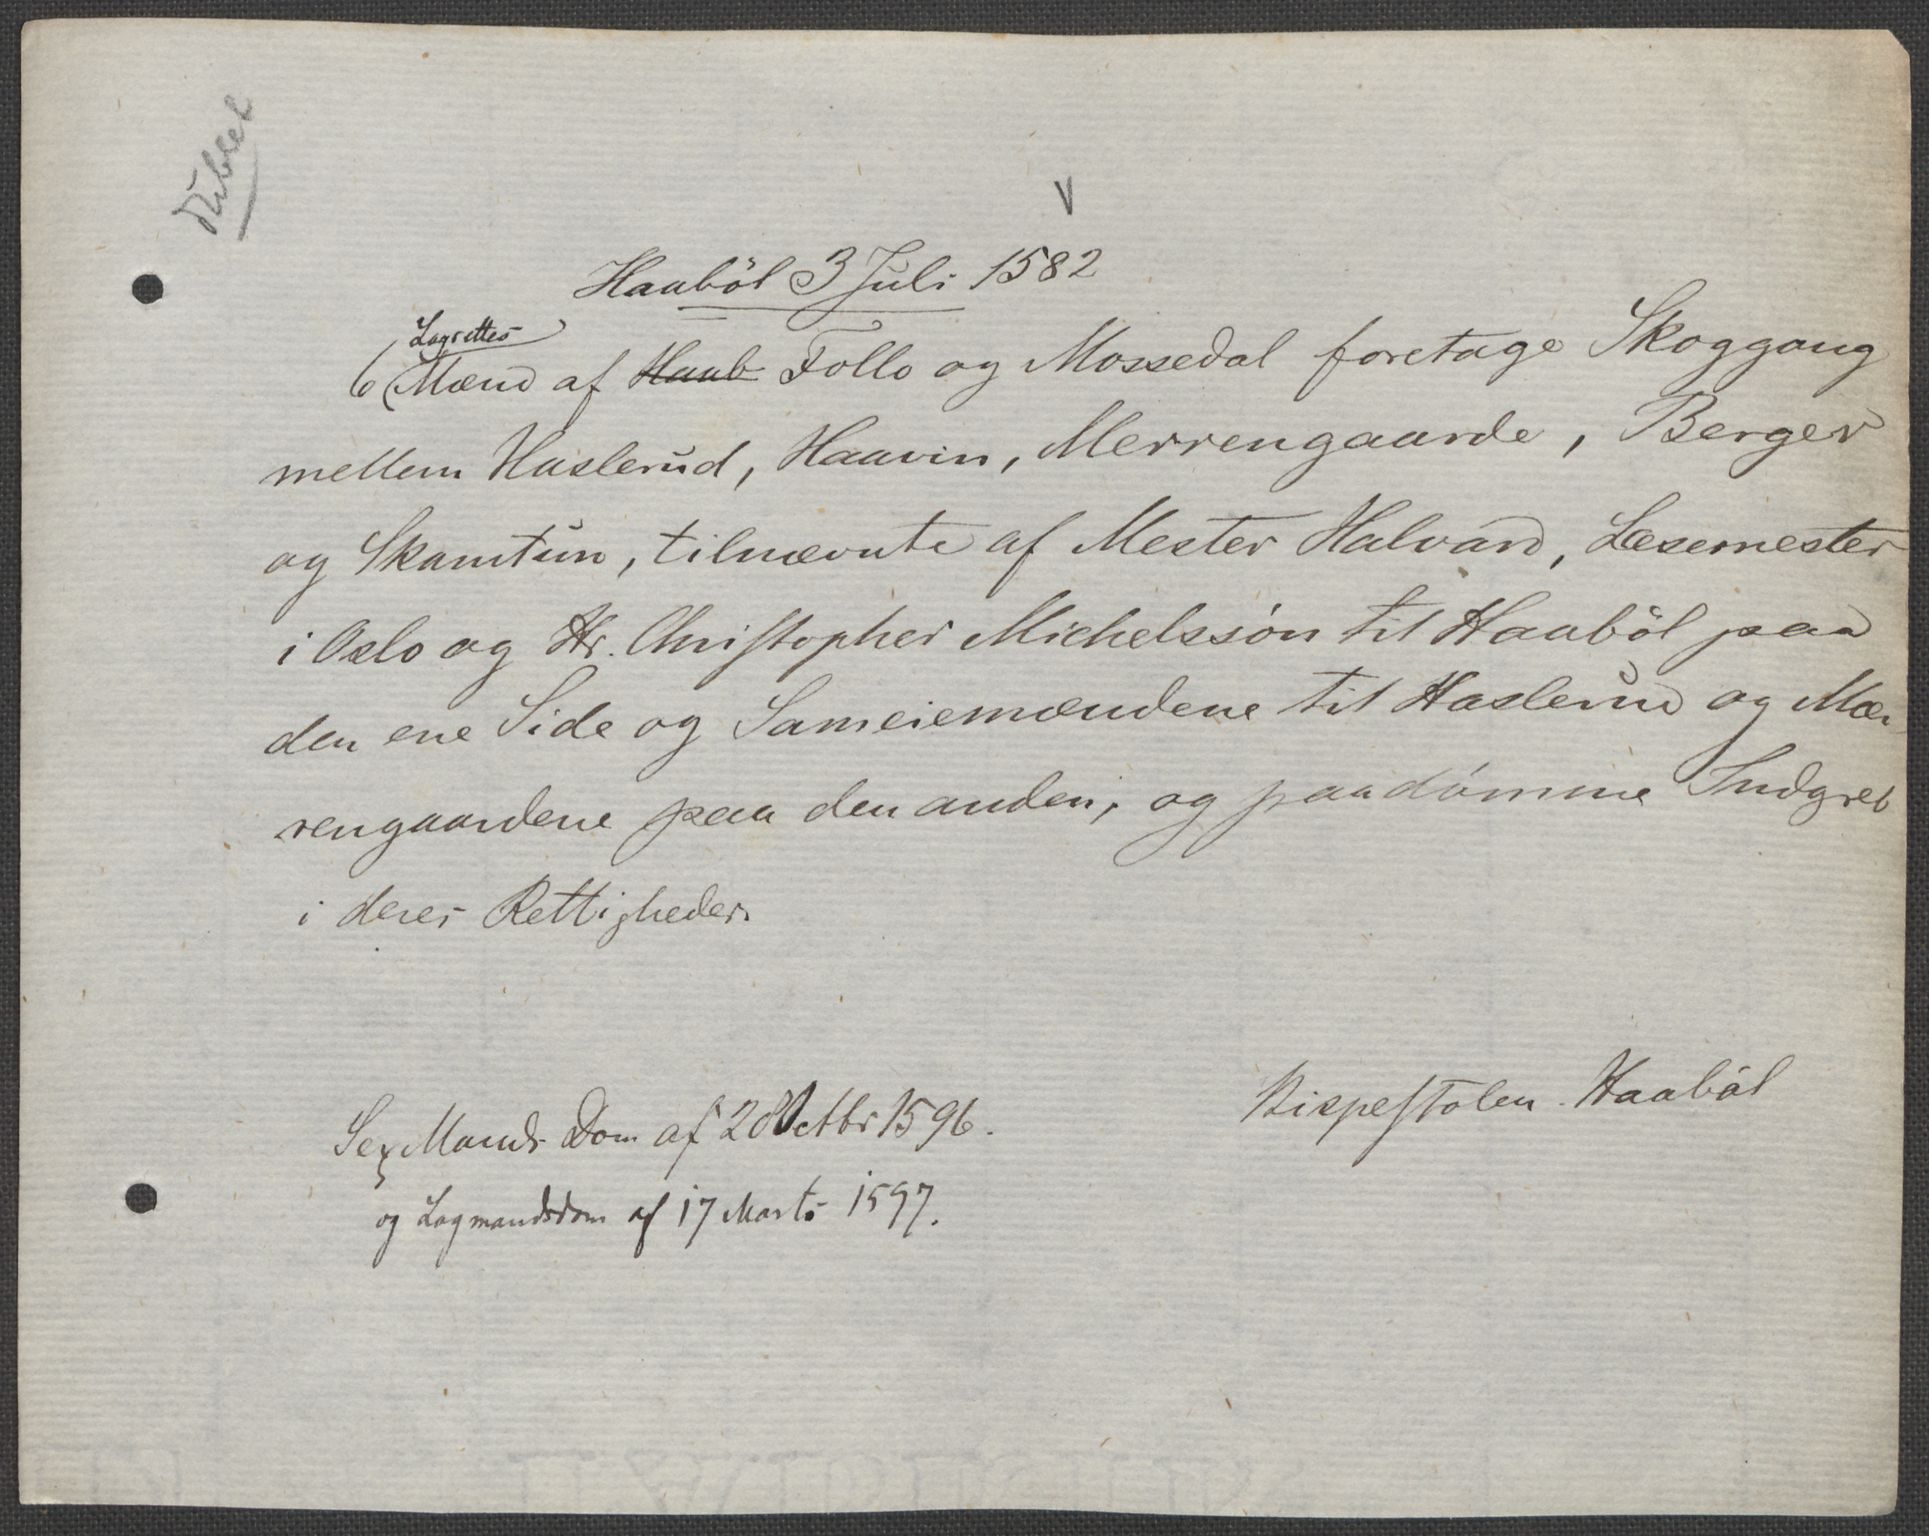 Dublet
V
Haaböl 3 Juli 1582
Lagrettes
6 (Mænd af Haab Follo og Mossedal foretage Skoggang
mellem Haslerud, Haavin, Merrengaarde, Berger
og Skamtun, tilnævnte af Mester Halvard, Læsemester
i Oslo og Hr. Christopher Michelssön til Haaböl paa
den ene Side og Sameiemændene til Haslerud og Mær-
rengaardene paa den anden, og paadömme Indgreb
i deres Rettigheder.
Bispestolen. Haaböl
Sex Mands Dom af 28 Octbr 1596.
og Lagmandsdom af 17 Marts 1597.